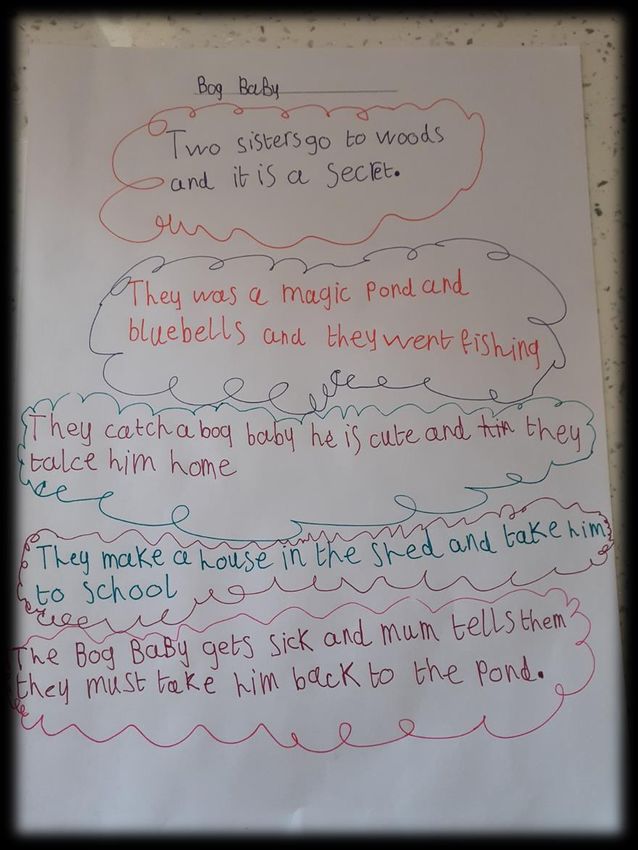 Bog BaBy
Two sisters go to woods
and it is a Secret.
They was a magic pond and
bluebells and they went fishing
They catch a bog baby he is cute and him they
talce him home
They make a house in the shed and take him
to school
The Bog BaBy gets sick and mum tells them
they must take him back to the pond.